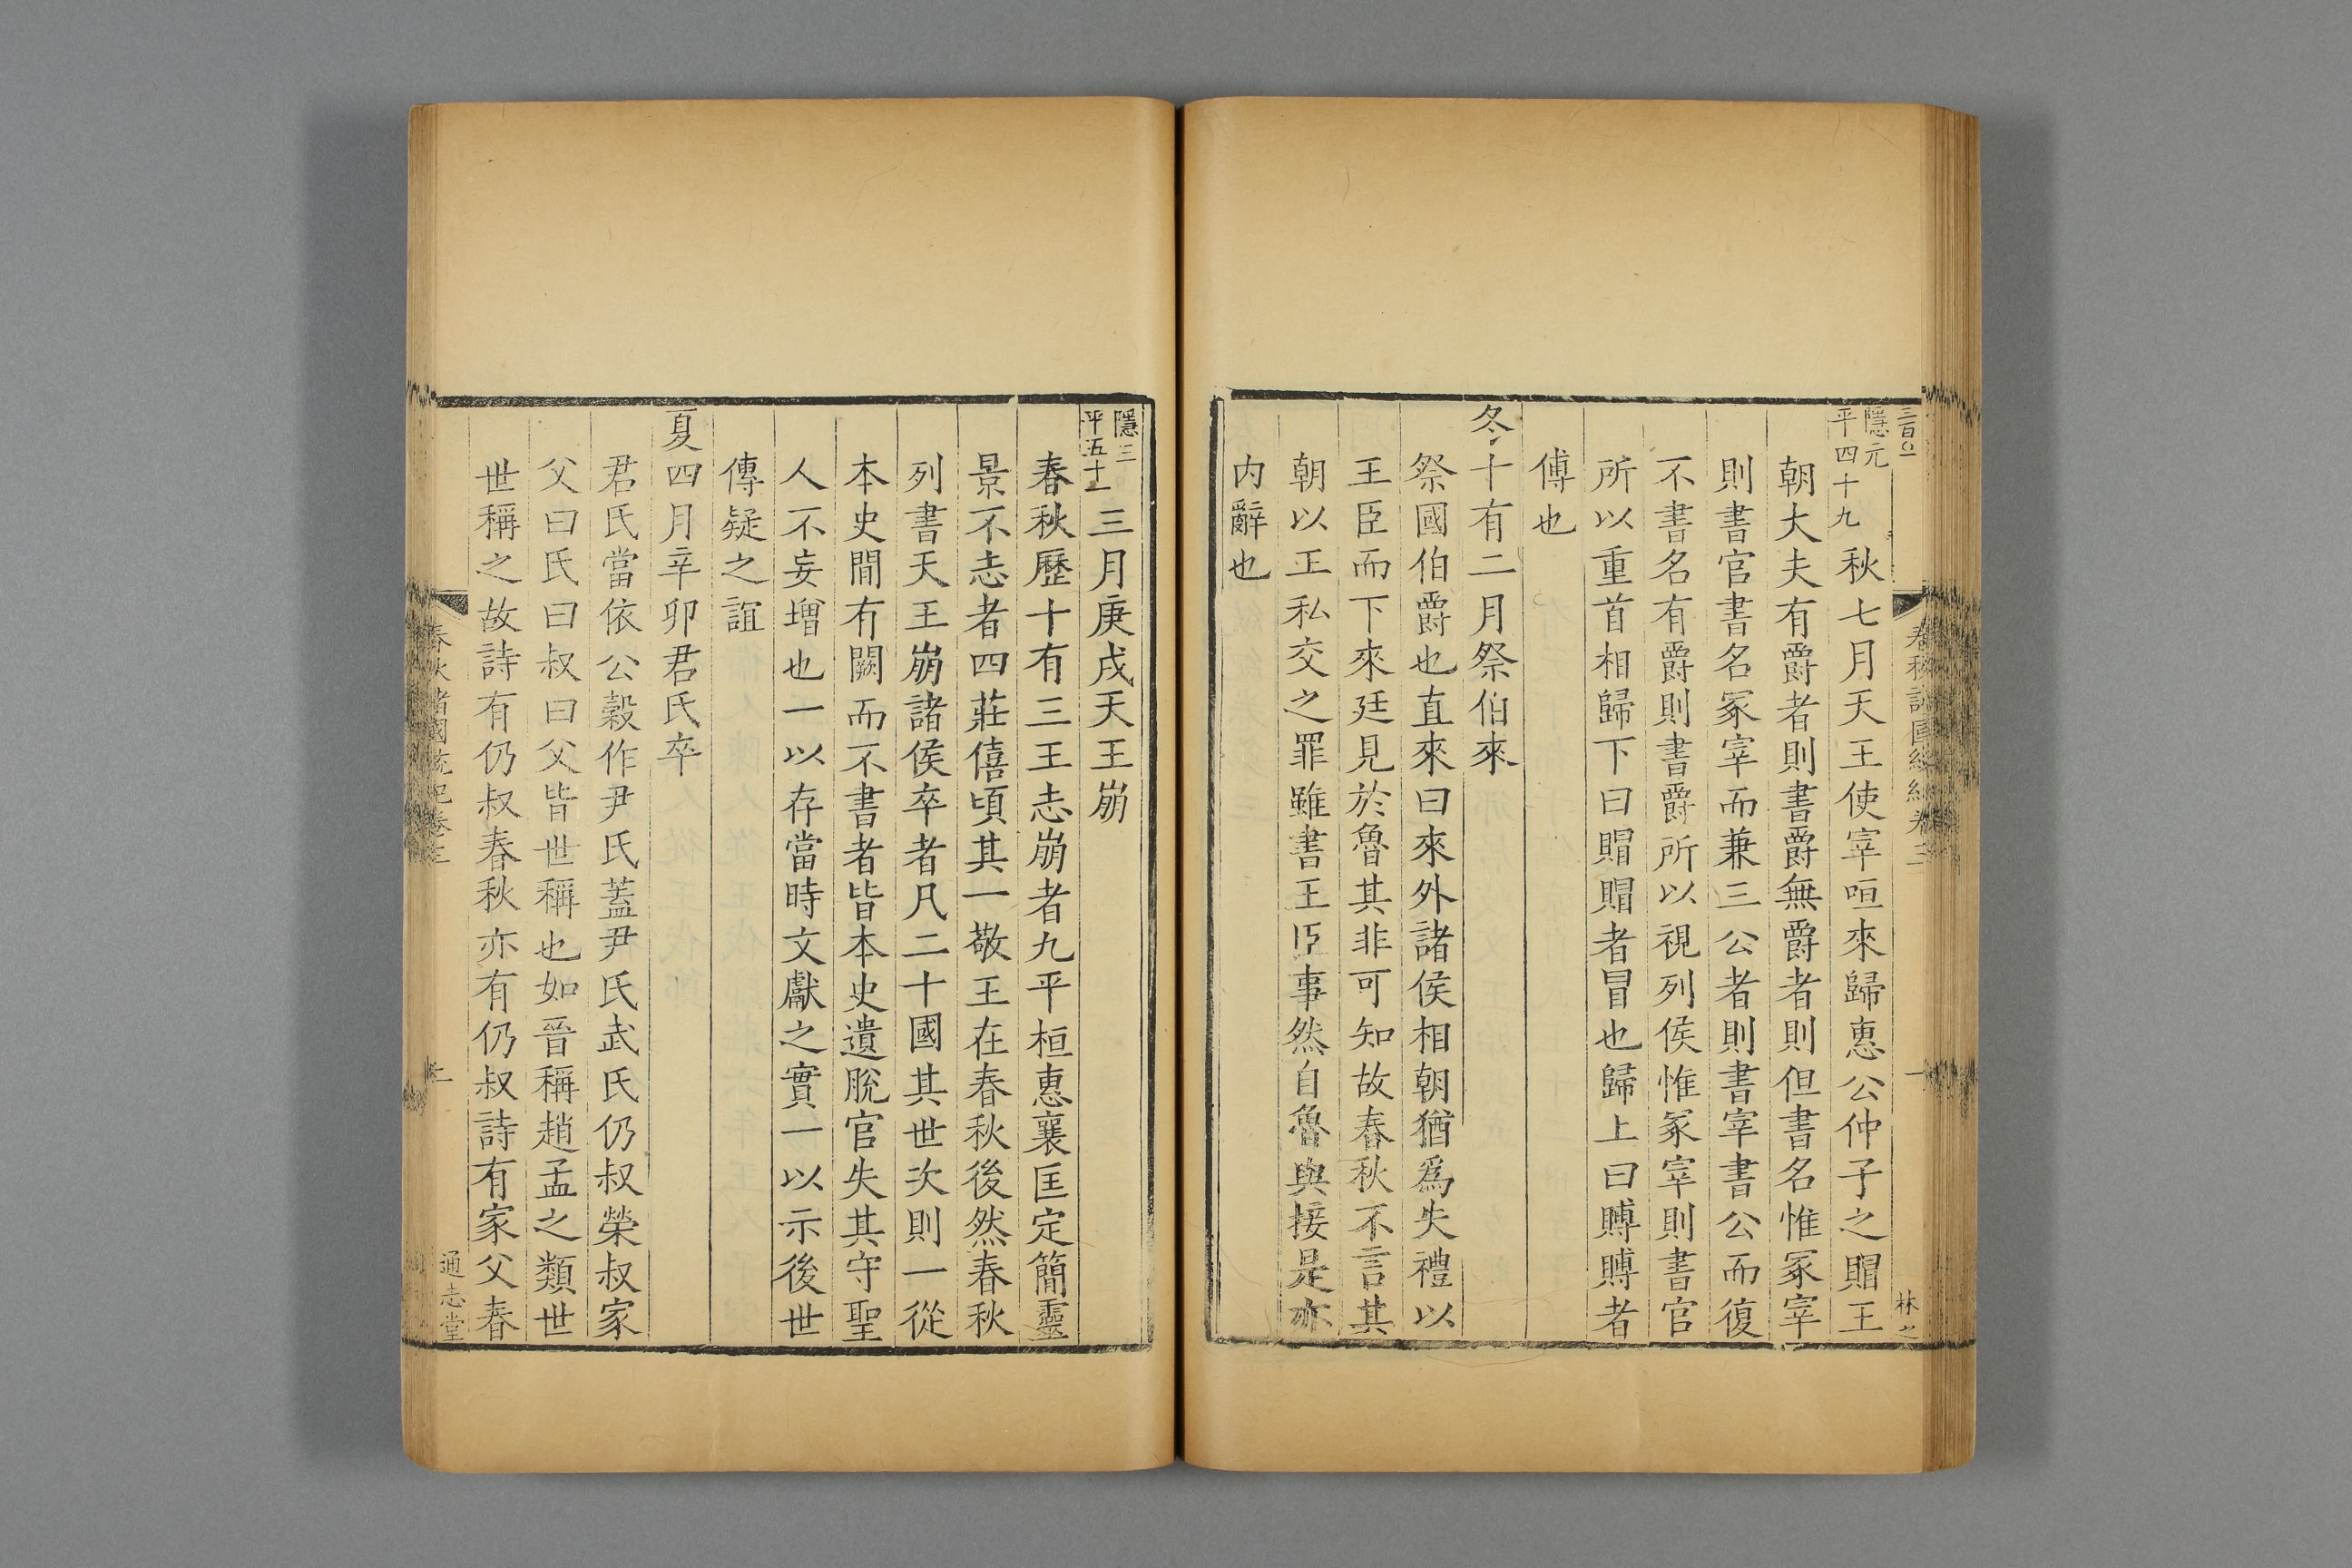 三百〇一
春秋諸國統紀卷三
一
林之
隱元
平四十九
秋七月天王使宰咺來歸惠公仲子之賵王
朝大夫有爵者則書爵無爵者則但書名惟冢宰
則書官書名冢宰而兼三公者則書宰書公而復
不書名有爵則書爵所以視列侯惟冢宰則書官
所以重首相歸下曰賵賵者冒也歸上曰賻賻者
傅也
冬十有二月祭伯來
祭國伯爵也直來曰來外諸侯相朝猶爲失禮以
王臣而下來廷見於魯其非可知故春秋不言其
朝以正私交之罪雖書王臣事然自魯與接是亦
内辭也
隱三
平五十一
三月庚戌天王崩
春秋歷十有三王志崩者九平桓惠襄匡定簡靈
景不志者四莊僖頃其一敬王在春秋後然春秋
列書天王崩諸侯卒者凡二十國其世次則一從
本史閒有闕而不書者皆本史遺脫官失其守聖
人不妄增也一以存當時文獻之實一以示後世
傳疑之誼
夏四月辛卯君氏卒
君氏當依公穀作尹氏蓋尹氏武氏仍叔榮叔家
父曰氏曰叔曰父皆世稱也如晉稱趙孟之類世
世稱之故詩有仍叔春秋亦有仍叔詩有家父春
春秋諸國統紀卷三
二
通志堂